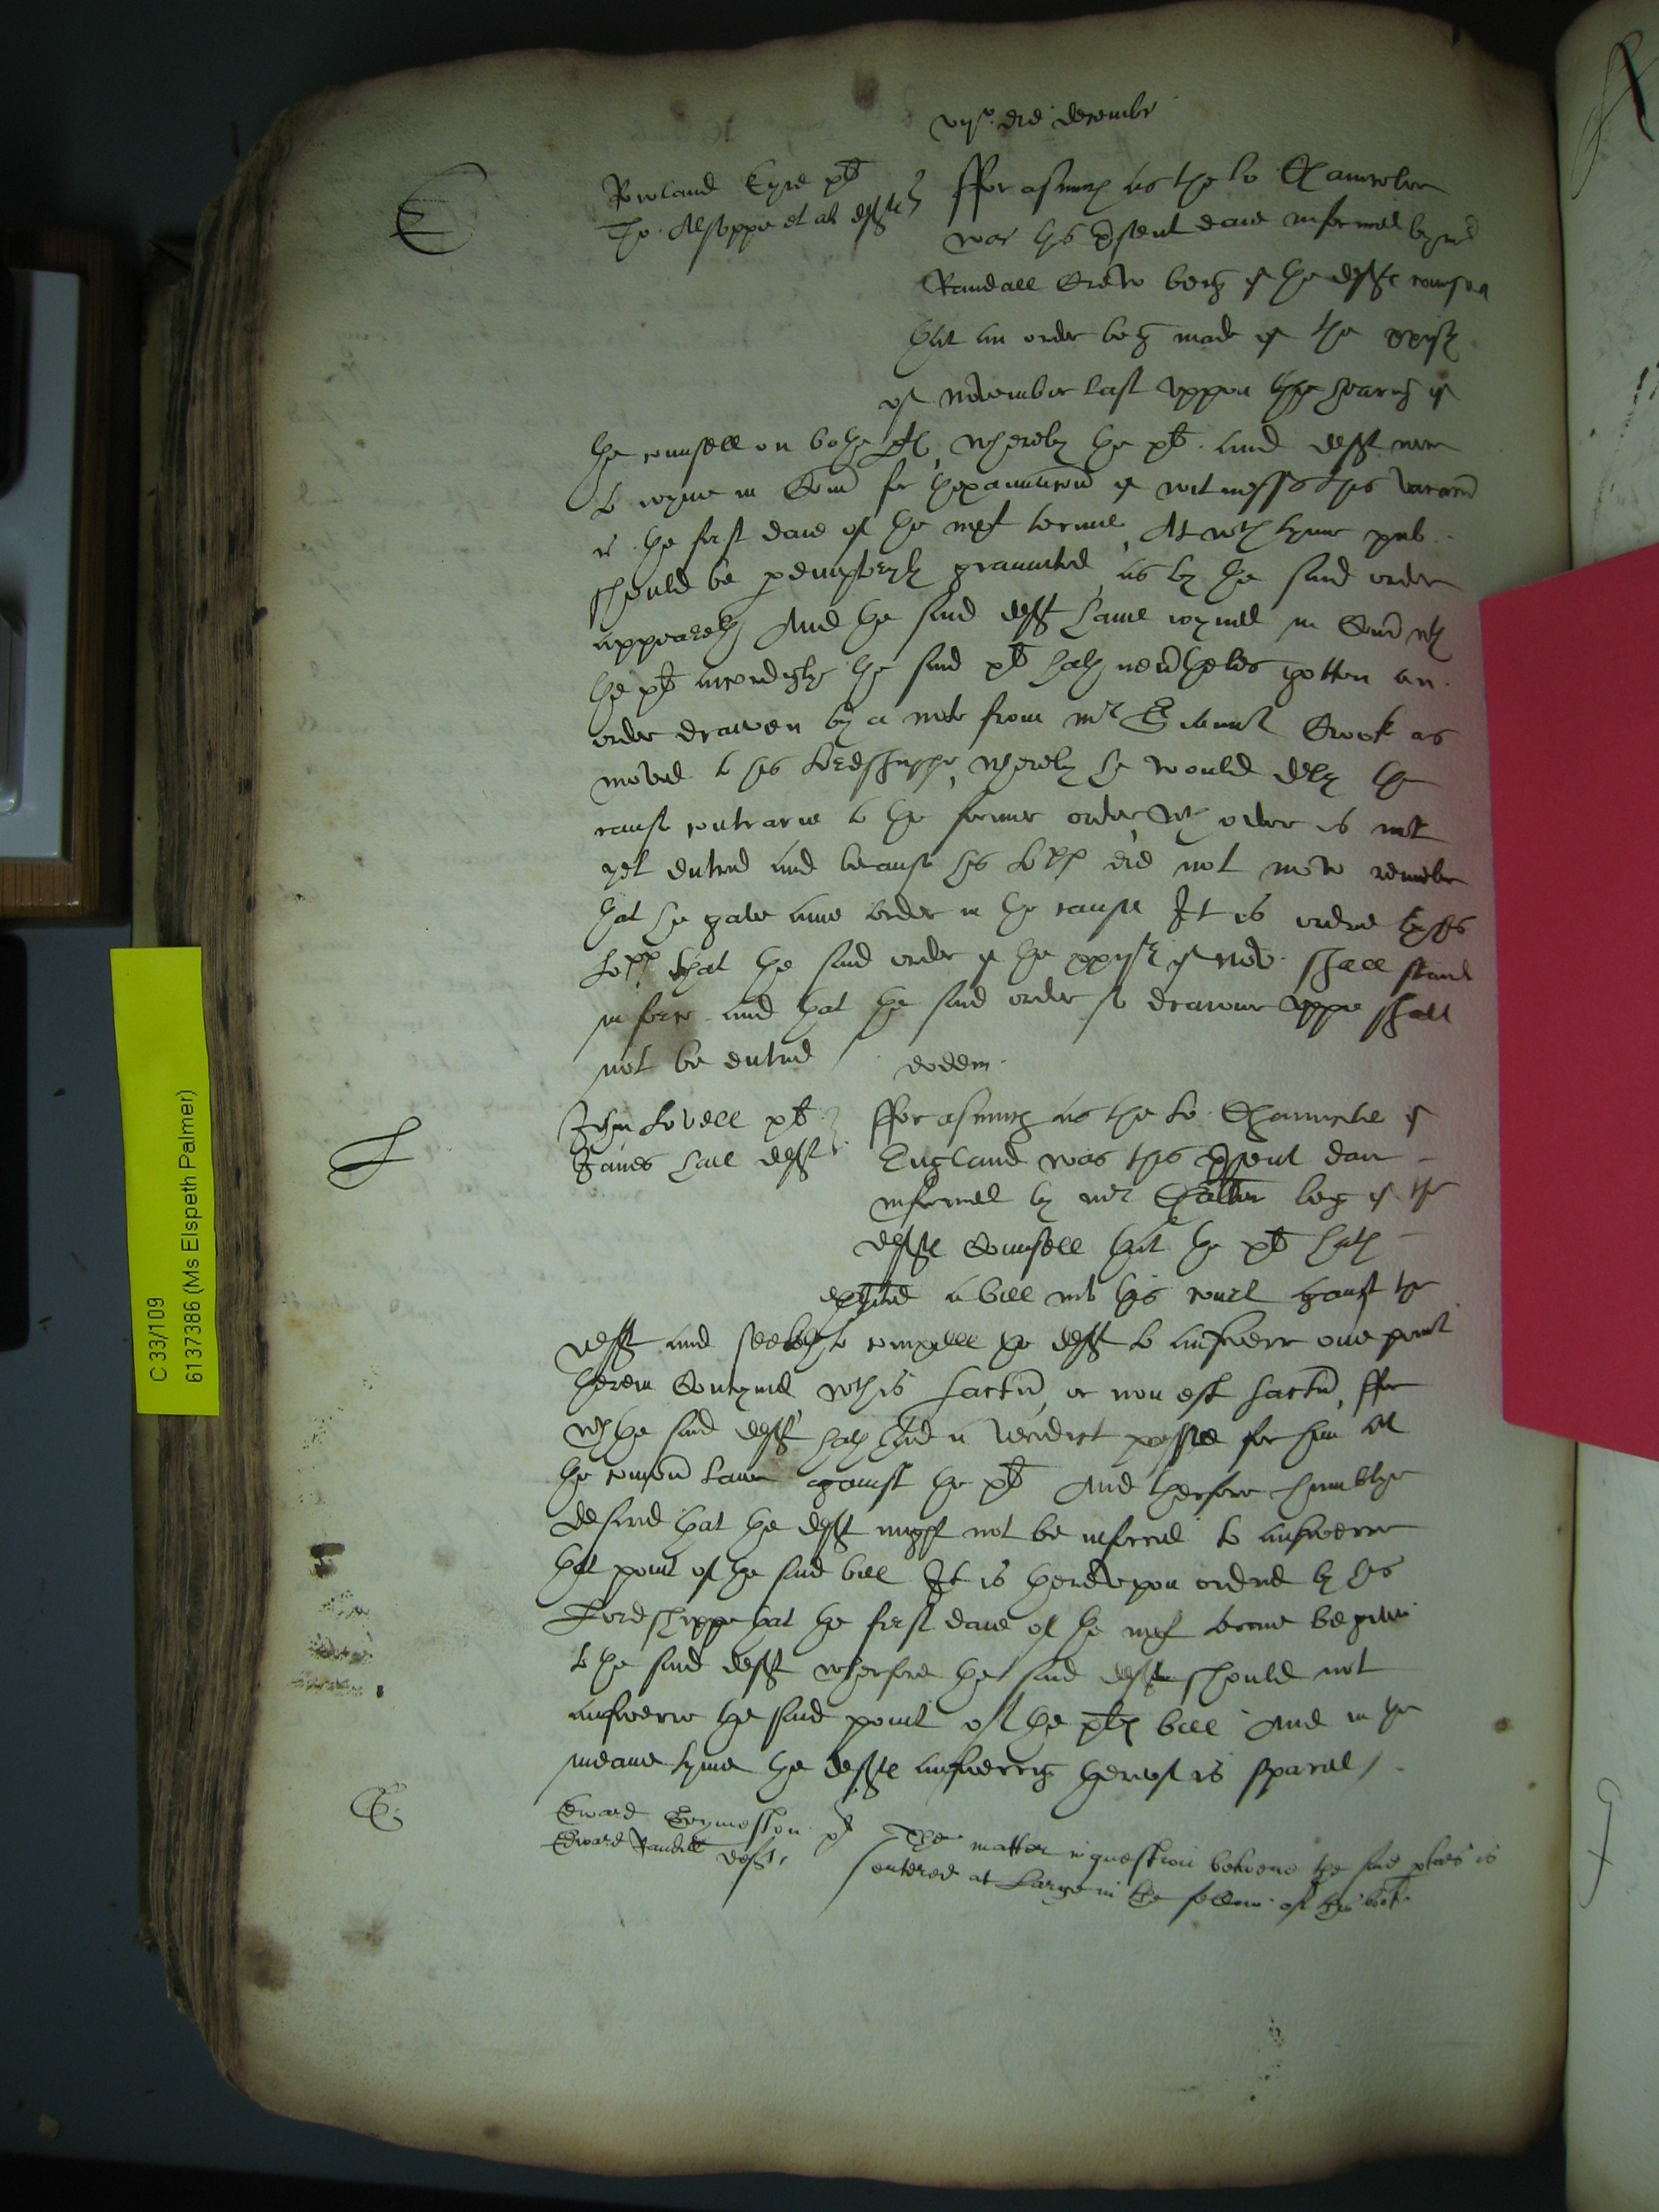 vij° die decembr
E
Rowland Eyre pt
Tho. Alsoppe et al deftes
fforasmuch as the Lo Chauncelor
was this present daie informed by mr
Randall Crew beinge of the deftes counsell
that an order beinge made of the xxvjth
of November last uppon the hearinge of
the counsell on bothe pts, whereby the pt. and deft were
to ioyne in Com for thexaminacon of witnesses this vacacon
the first daie of the next terme, At wch tyme pub.
should be peremptorily graunted, as by the said order
appeareth And the said deft have ioyned in Com wth
the pt accordingly the said pt hath nevertheles gotten an
order drawen by a note from mr Crook as
moved to his Lordshippe, whereby he would delay the
cause contrarie to the former order, wch order is not
yet entred and because his Lopp did not now remember
that he gave anie order in the cause It is ordred by his
Lopp that the said order of the xxvjth of Nov. shall stand
in force and that the said order so drawne uppe shall
not be entred / eodem.
L
John Lovell pt
James deft
fforasmuch as the Lo. Chauncelor of
England was this present daie
informed by mr beinge of the
deftes Counsell that the pt hath
exhibited a bill into this court against the
deft and seeketh to compell the deft to answere one point
therein Conteyned, wch is factu, or non est factu, ffor
wch the said deft hath had a verdict passed for him at
the comon Lawe against the pt And therfore humblye
desired that the deft might not be inforced to answere
that point of the said bill It is thereuppon ordred by his
Lordshippe that the first daie of the next terme be given
to the said deft wherfore the said deft should not
answere the said point of the pts bill And in the
meane tyme the deftes answeringe thereof is spared /
E
Edward Grymeston pt
Edward Randall deft,
The matter in question betweene the said pties is
entered at Large in the follow of this book
C 33/109
6137386 (Ms Elspeth Palmer)